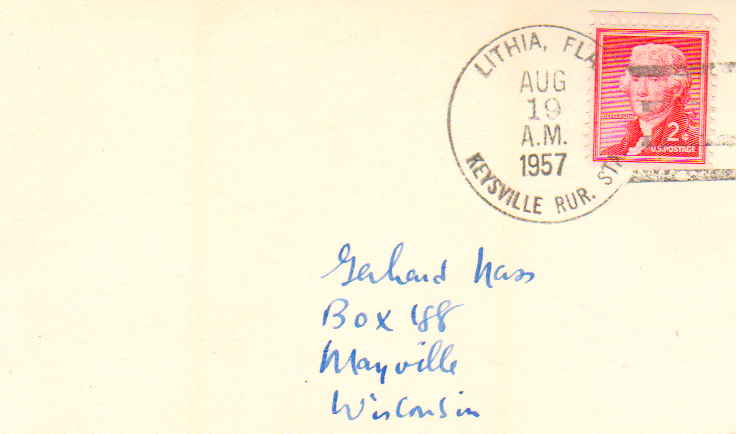 LITHIA, FLA.
AUG
19
A.M.
1957
KEYSVILLE RUR. STA.
2¢
U.S. POSTAGE
Gerhard Nass
Box 188
Mayville
Wisconsin